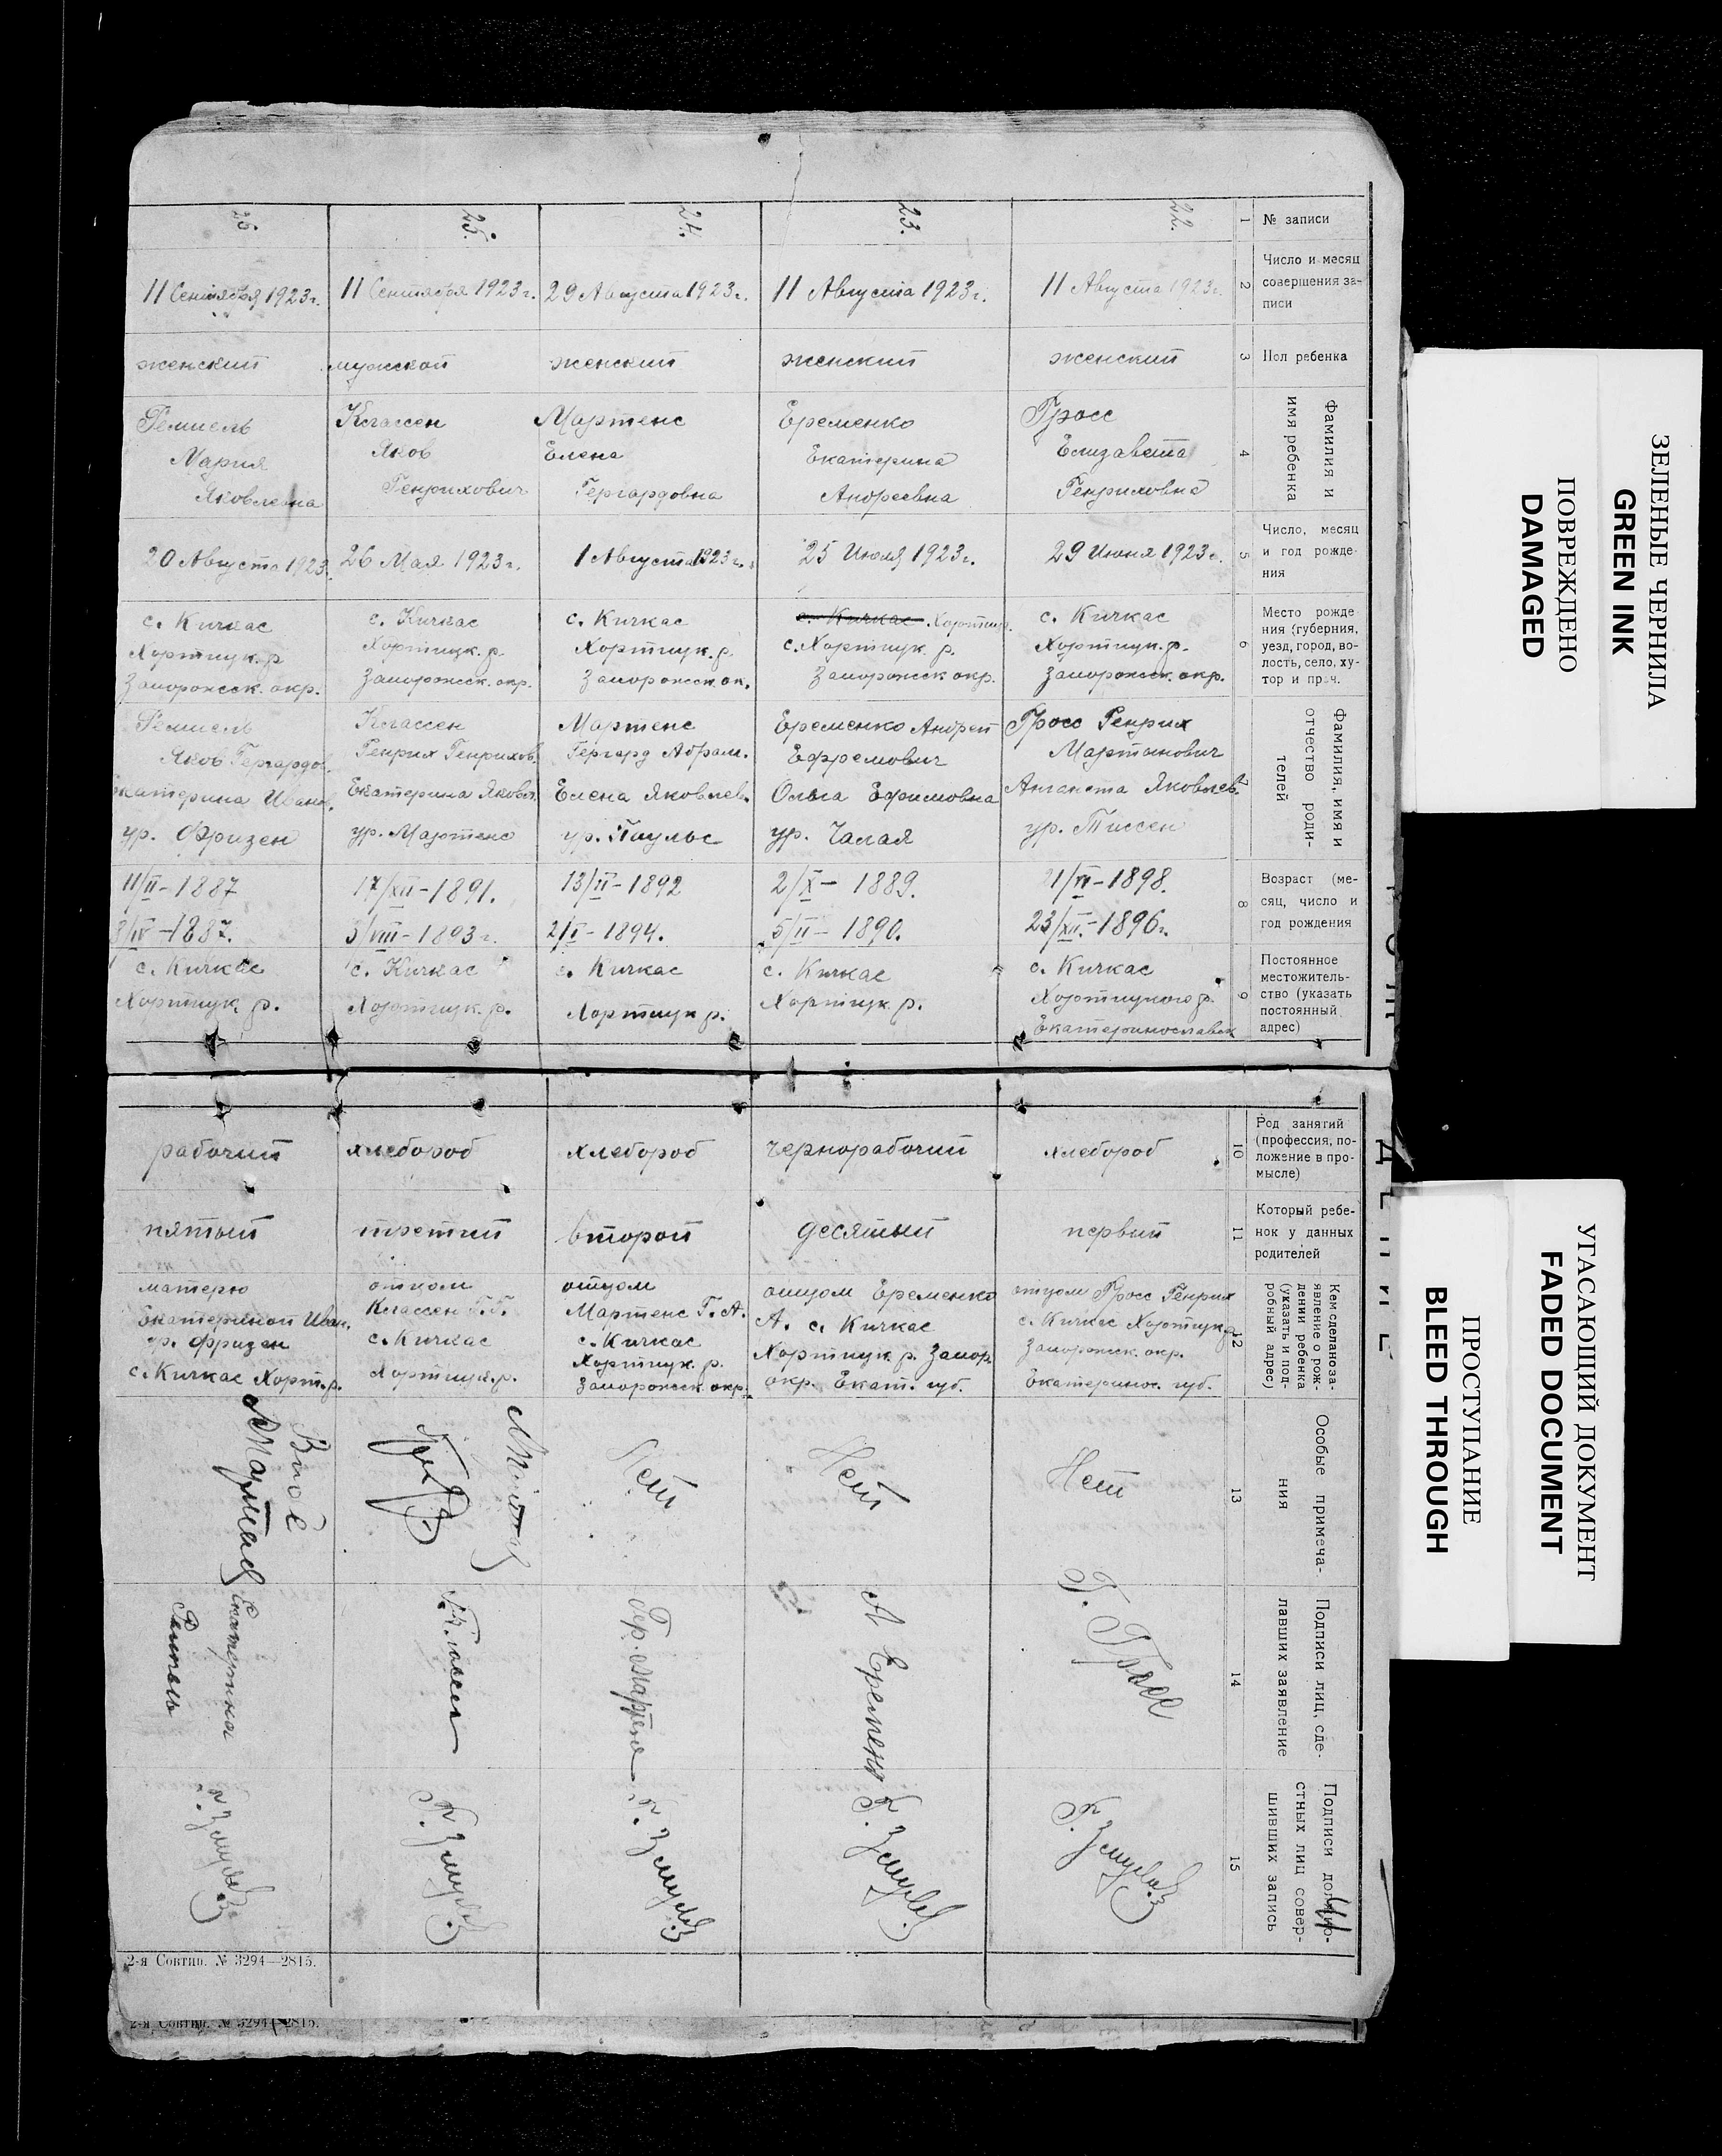 № записи
1
22.
23.
24.
25.
Число и месяц
совершения за-
писи
2
11 Августа 1923 г.
11 Августа 1923 г.
29 Августа 1923 г.
11 Сентября 1923 г.
11 Сентября 1923 г.
Пол ребенка
3
женский
женский
женский
мужской
женский
Фамилия и
имя ребенка
4
Гросс
Елизавета
Генриховна
Еременко
Екатерина
Андреевна
Мартенс
Елена
Гергардовна
Классен
Яков
Генрихович
Ремпель
Мария
Яковлевна
Число, месяц
и год рожде-
ния
5
29 Июня 1923 г.
25 Июля 1923 г.
1 Августа 1923 г.
26 Мая 1923 г.
20 Августа 1923
Место рожде
ния (губерния,
уезд, город, во-
лость, село, ху-
тор и проч.
6
с. Кичкас
Хортицк. р.
Запорожск. окр.
с. Кичкас
с. Хортицк р.
Запорожск окр.
с. Кичкас
Хортицк. р.
Запорожск ок.
с. Кичкас
Хортицк. р.
Запорожск. окр.
с. Кичкас
Хортицк. р
Запорожск. окр.
Фамилия, имя и
отчество роди-
телей
7
Гросс Генрих
Мартынович
Анганета Яковлев.
ур. Тиссен
Еременко Андрей
Ефремович
Ольга Ефимовна
ур. Чалая
Мартенс
Гергард Абрам.
Елена Яковлев.
ур. Паульс
Классен
Генрих Генрихов.
Екатерина Яковл.
ур. Мартенс
Ремпель
Яков Гергардов.
Екатерина Иванов.
ур. Фризен
Возраст (ме-
сяц, число и
год рождения
8
21/VI-1898.
23/XII.-1896 г.
2/X- 1889.
5/II- 1890.
13/II-1892
2/I- 1894.
17/XII-1891.
3/VIII-1893 г.
11/II-1887
3/IV-1887.
Постоянное
местожитель-
ство (указать
постоянный
адрес)
9
с. Кичкас
Хортицкого р.
Екатеринославск
с. Кичкас
Хортицк. р.
с. Кичкас
Хортицк р.
с. Кичкас
Хортицк. р.
с. Кичкас
Хортицк. р.
Род занятий
(профессия, по-
ложение в про-
мысле)
10
хлебороб
чернорабочий
хлебороб
хлебороб
рабочий
Который ребе-
нок у данных
родителей
11
первый
десятый
второй
третий
пятый
Кем сделано за-
явление о рож-
дении ребенка
(указать и под-
робный адрес)
12
отцом Гросс Генрих
с. Кичкас Хортицк р
Запорожск. окр.
Екатеринос. губ.
отцом Еременко
А. с. Кичкас
Хортицк р. Запор.
окр. Екат. губ.
отцом
Мартенс Г. А.
с. Кичкас
Хортицк. р.
Запорожск окр.
отцом
Классен Г. Г.
с. Кичкас
Хортицк. р.
матерю
Екатериной Иван.
ур. Фризен
с. Кичкас Хорт. р.
Особые примеча-
ния
13
Нет
Нет
Нет
Подписи лиц, сде-
лавших заявление
14
Г. Гросс
А Еременко
Гер. Мартенс
Екатерина
Ремпель
Подписи должно-
стных лиц совер-
шивших запись
15
2-я Совтип. № 3294—2815.
2-я Совтип. № 3294—2815.
ЗЕЛЕНЫЕ ЧЕРНИЛА
GREEN INK
ПОВРЕЖДЕНО
DAMAGED
УГАСАЮЩИЙ ДОКУМЕНТ
FADED DOCUMENT
ПРОСТУПАНИЕ
BLEED THROUGH